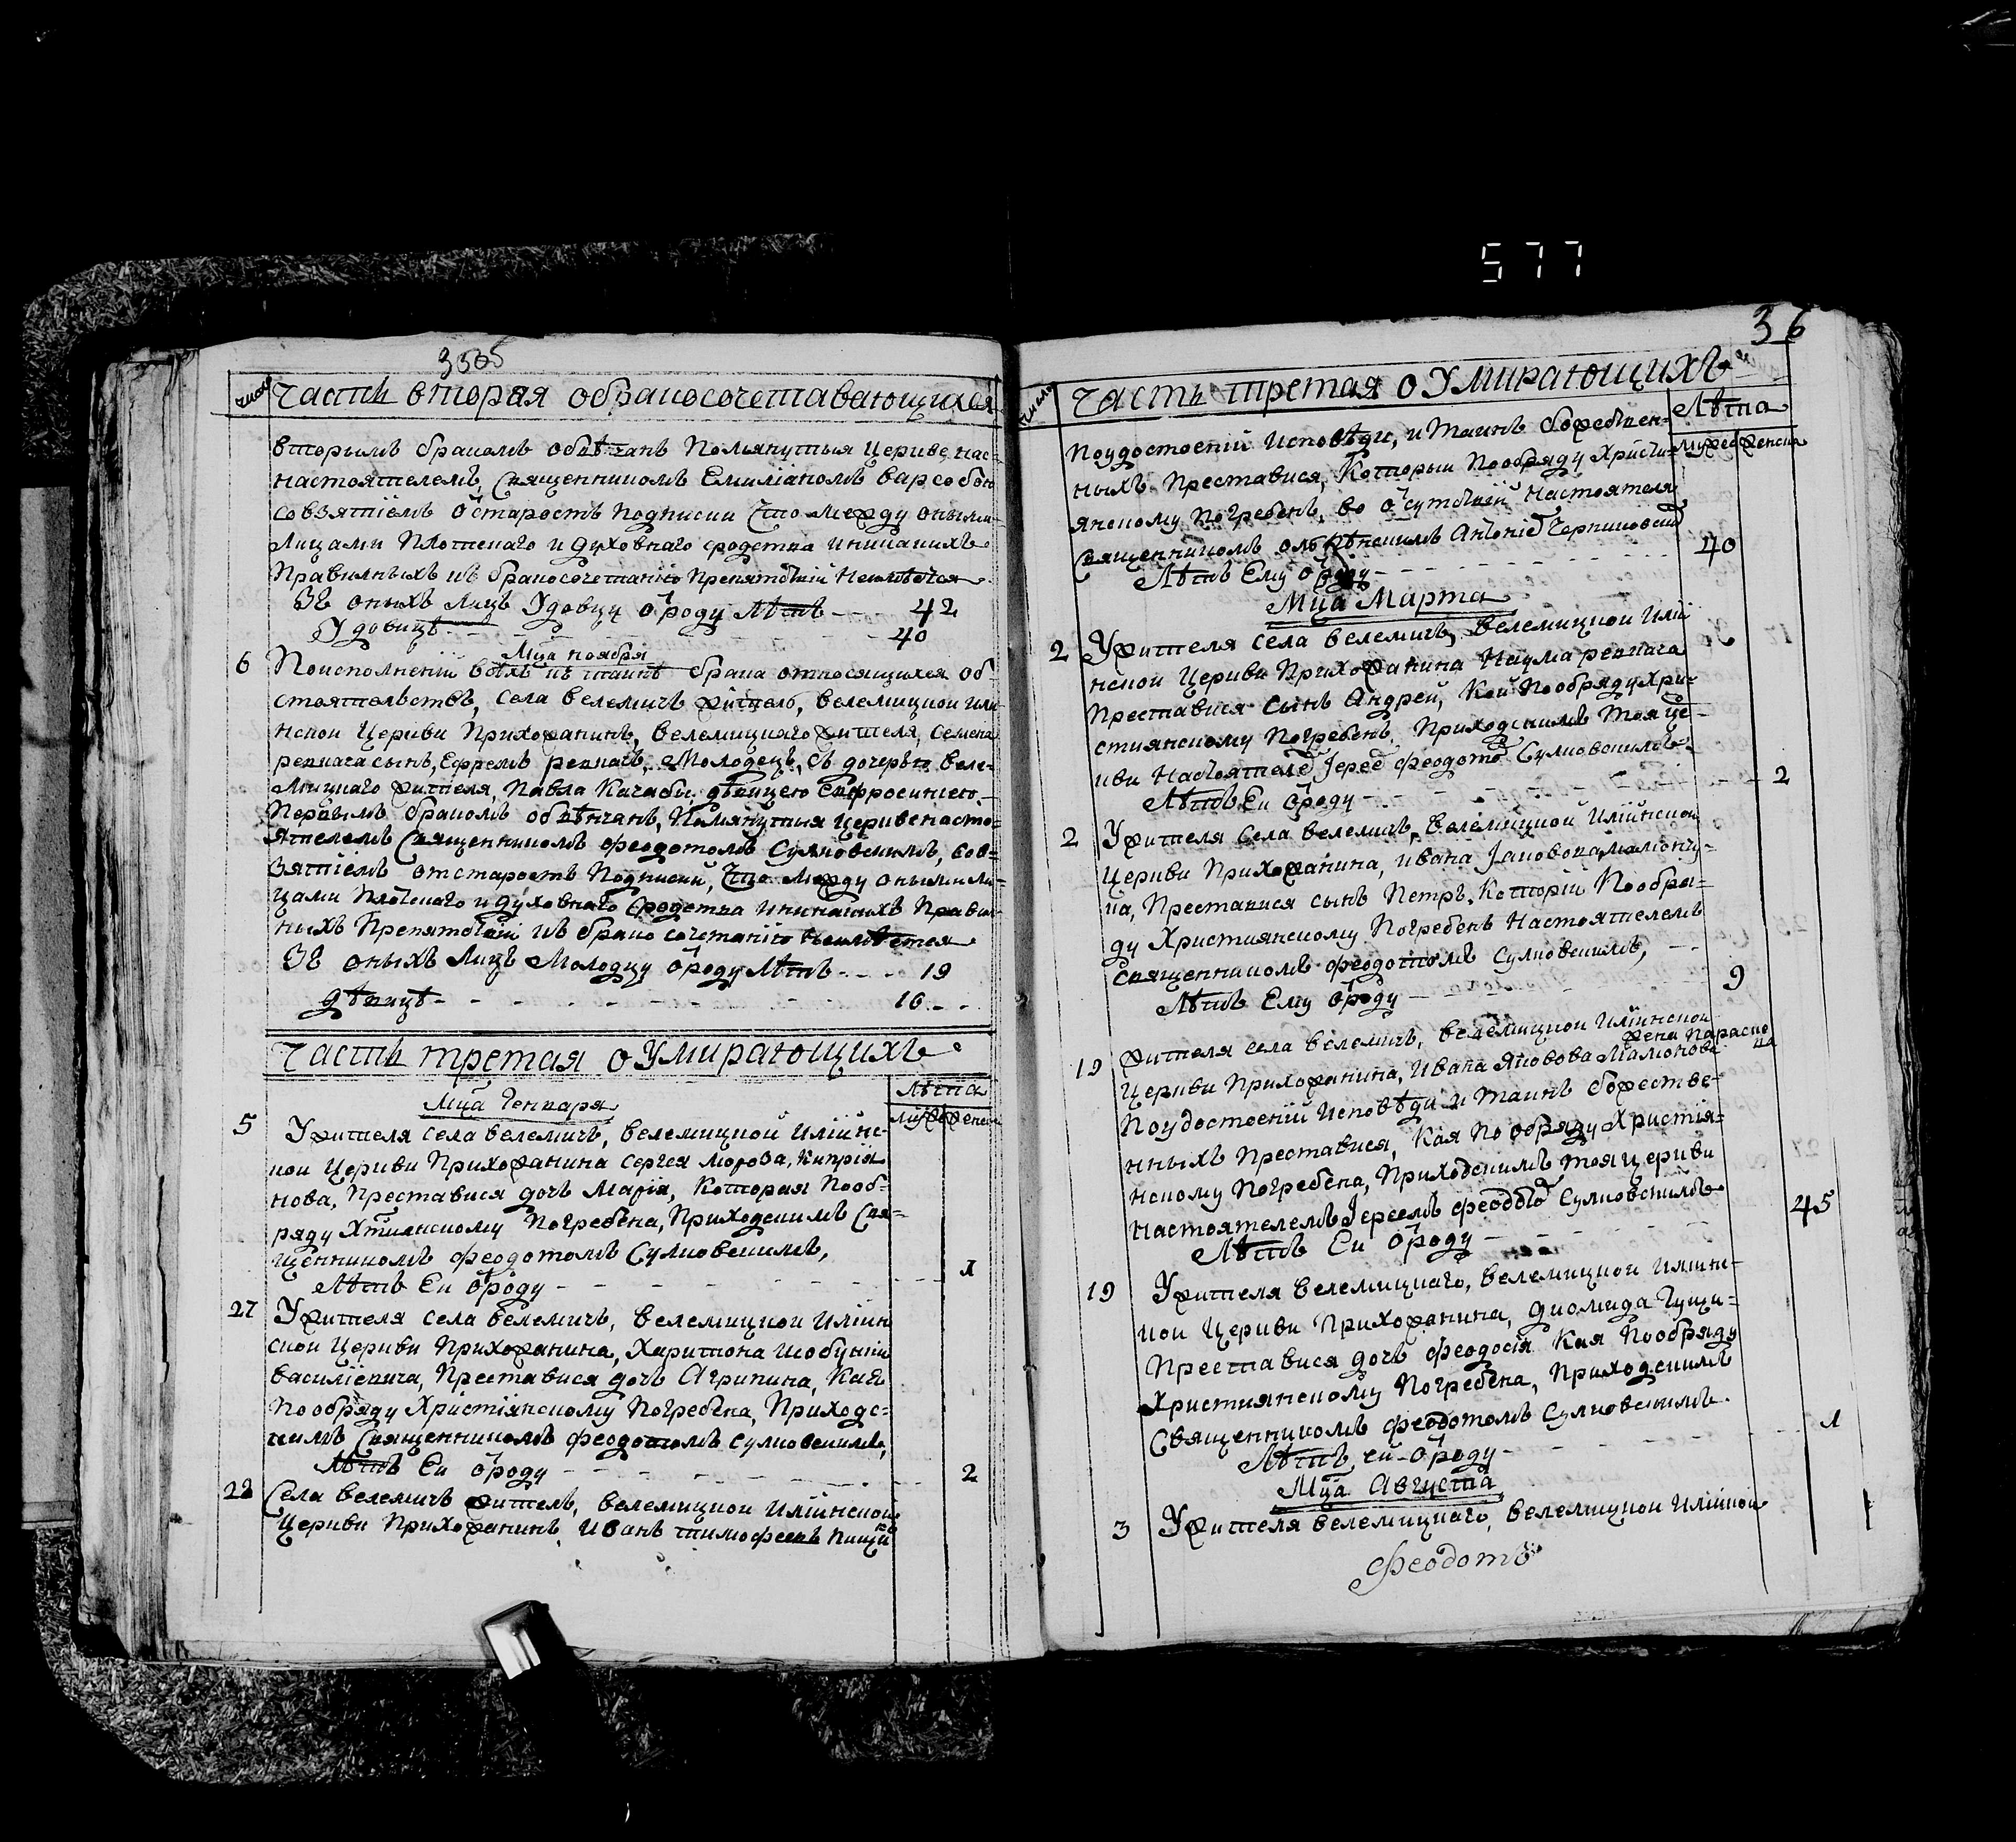 577
3505
число
Часть вторая о бракосочетавающихся
вторымъ бракомъ обвѣнчанъ Помянутыя Церкве нас-
настоятелемъ, Священникомъ Емиліаномъ
совзятіемъ ѿ старостъ подписки Что Между оными
Лицами Плотскаго и Духовнаго сродства иникакихъ
Правилныхъ къ бракосочетанію Препятствій Неимѣется
Зъ оныхъ Лицъ Удовцу ѿроду Лѣтъ - - 42
Удовицѣ - - 40
Мца ноября
6 Поисполненіи всѣхъ къ таинѣ брака относящихся Об-
стоятельствъ, Села велемичъ житель, велемицкои или-
нскои Церкви Прихожанинъ, велемицкаго жителя, Семена
репкача сынъ, Ефремъ репкачъ, Молодецъ, съ дочерью Веле-
мицкаго жителя, Павла Качабы дѣвицею Евфросиніею
Первымъ бракомъ обвѣнчанъ, Помянутыя Церкве насто-
ятелемъ Священникомъ Феодотомъ Сулковскимъ, Совь-
зятіемъ от старостъ Подписки, Что Между оными Ли-
цами Плотскаго и Духовнаго Сродства иникакихъ Правил-
ныхъ Препятствій къ бракосочетанію Неимѣется
Зъ оныхъ Лицъ Молодцу ѿроду Лѣтъ - - 19
дѣвицѣ - - 16 - -
Часть третая о Умирающихъ
Лѣта
Мужес Женска
Мца Генваря
5 Ужителя села велемичъ, велемицкой Илійнс-
кои Церкви Прихожанина Сергея Мороза, Кипрія-
нова, Преставися дочъ Марія, Которая Пооб-
ряду Хтиянскому Погребена, Приходскимъ Свя-
щенникомъ Феодотомъ Сулковскимъ,
Лѣтъ Еи ѿроду - - 1
27 Ужителя села велемичъ, велемицкои Иліин
скои Церкви Прихожанина, Харитона
василіевича, Преставися дочъ Агрипина, Кая
пообряду Христіянскому Погребена, Приходс-
кимъ Священникомъ Феодотомъ Сулковскимъ,
Лѣтъ Еи ѿроду - - 2
28 Села велемичъ житель, велемицкои Иліинскои
Церкви Прихожанинъ, Иванъ тимофеевъ
36
число
Часть третая о Умирающихъ
Лѣта
Мужес Женска
поудостоеніи Исповѣди, и Таинъ божествен-
ныхъ Преставися, Которыи Пообряду Христи-
янскому Погребенъ, во ѿсутствіи Настоятеля
Священникомъ Антоніе Черниковски
Лѣтъ Ему ѿроду - - 40
Мца Марта
2 Ужителя Села велемичъ, велемицкои Илій
нскои Церкви Прихожанина Наума репкача
Преставися Сынъ Андрей, Кой Пообряду Хри-
стиянскому Погребенъ, Приходскимъ Тоя це-
ркви Настоятеле Іерее Феодото Сулковскимъ
Лѣтъ Еи ѿроду - - 2
2 Ужителя Села велемичъ, Велемицкой Илійнскои
Церкви Прихожанина, Ивана Іаковова,
Преставися Сынъ Петръ, Которій Пообря-
ду Християнскому Погребенъ Настоятелемъ
Священникомъ Феодотомъ Сулковскимъ, - -
Лѣтъ Ему ѿроду - - 9
19 Жителя села велемичъ, велемицкои Иліинскои
Церкви Прихожанина, Ивана Яковова жена Параско
Поудостоеніи Исповѣди и Таинъ божестве-
нныхъ Преставися, Кая пообряду Христія-
нскому Погребена, Приходскимъ тоя церкви
Настоятелемъ Іереемъ Феодото Сулковскимъ
Лѣтъ Еи ѿроду - - 45
19 Ужителя велемицкаго, велемицкои Илиинс-
кои Церкви Прихожанина, Диомида
Преставися дочъ Феодосія Кая Пообряду
Християнскому Погребена, Приходскимъ
Священникомъ Феодотомъ Сулковскимъ.
Лѣтъ, ей ѿроду - - 1
Мца Августа
3 Ужителя велемицкаго, велемицкои Илійнои
Феодотъ